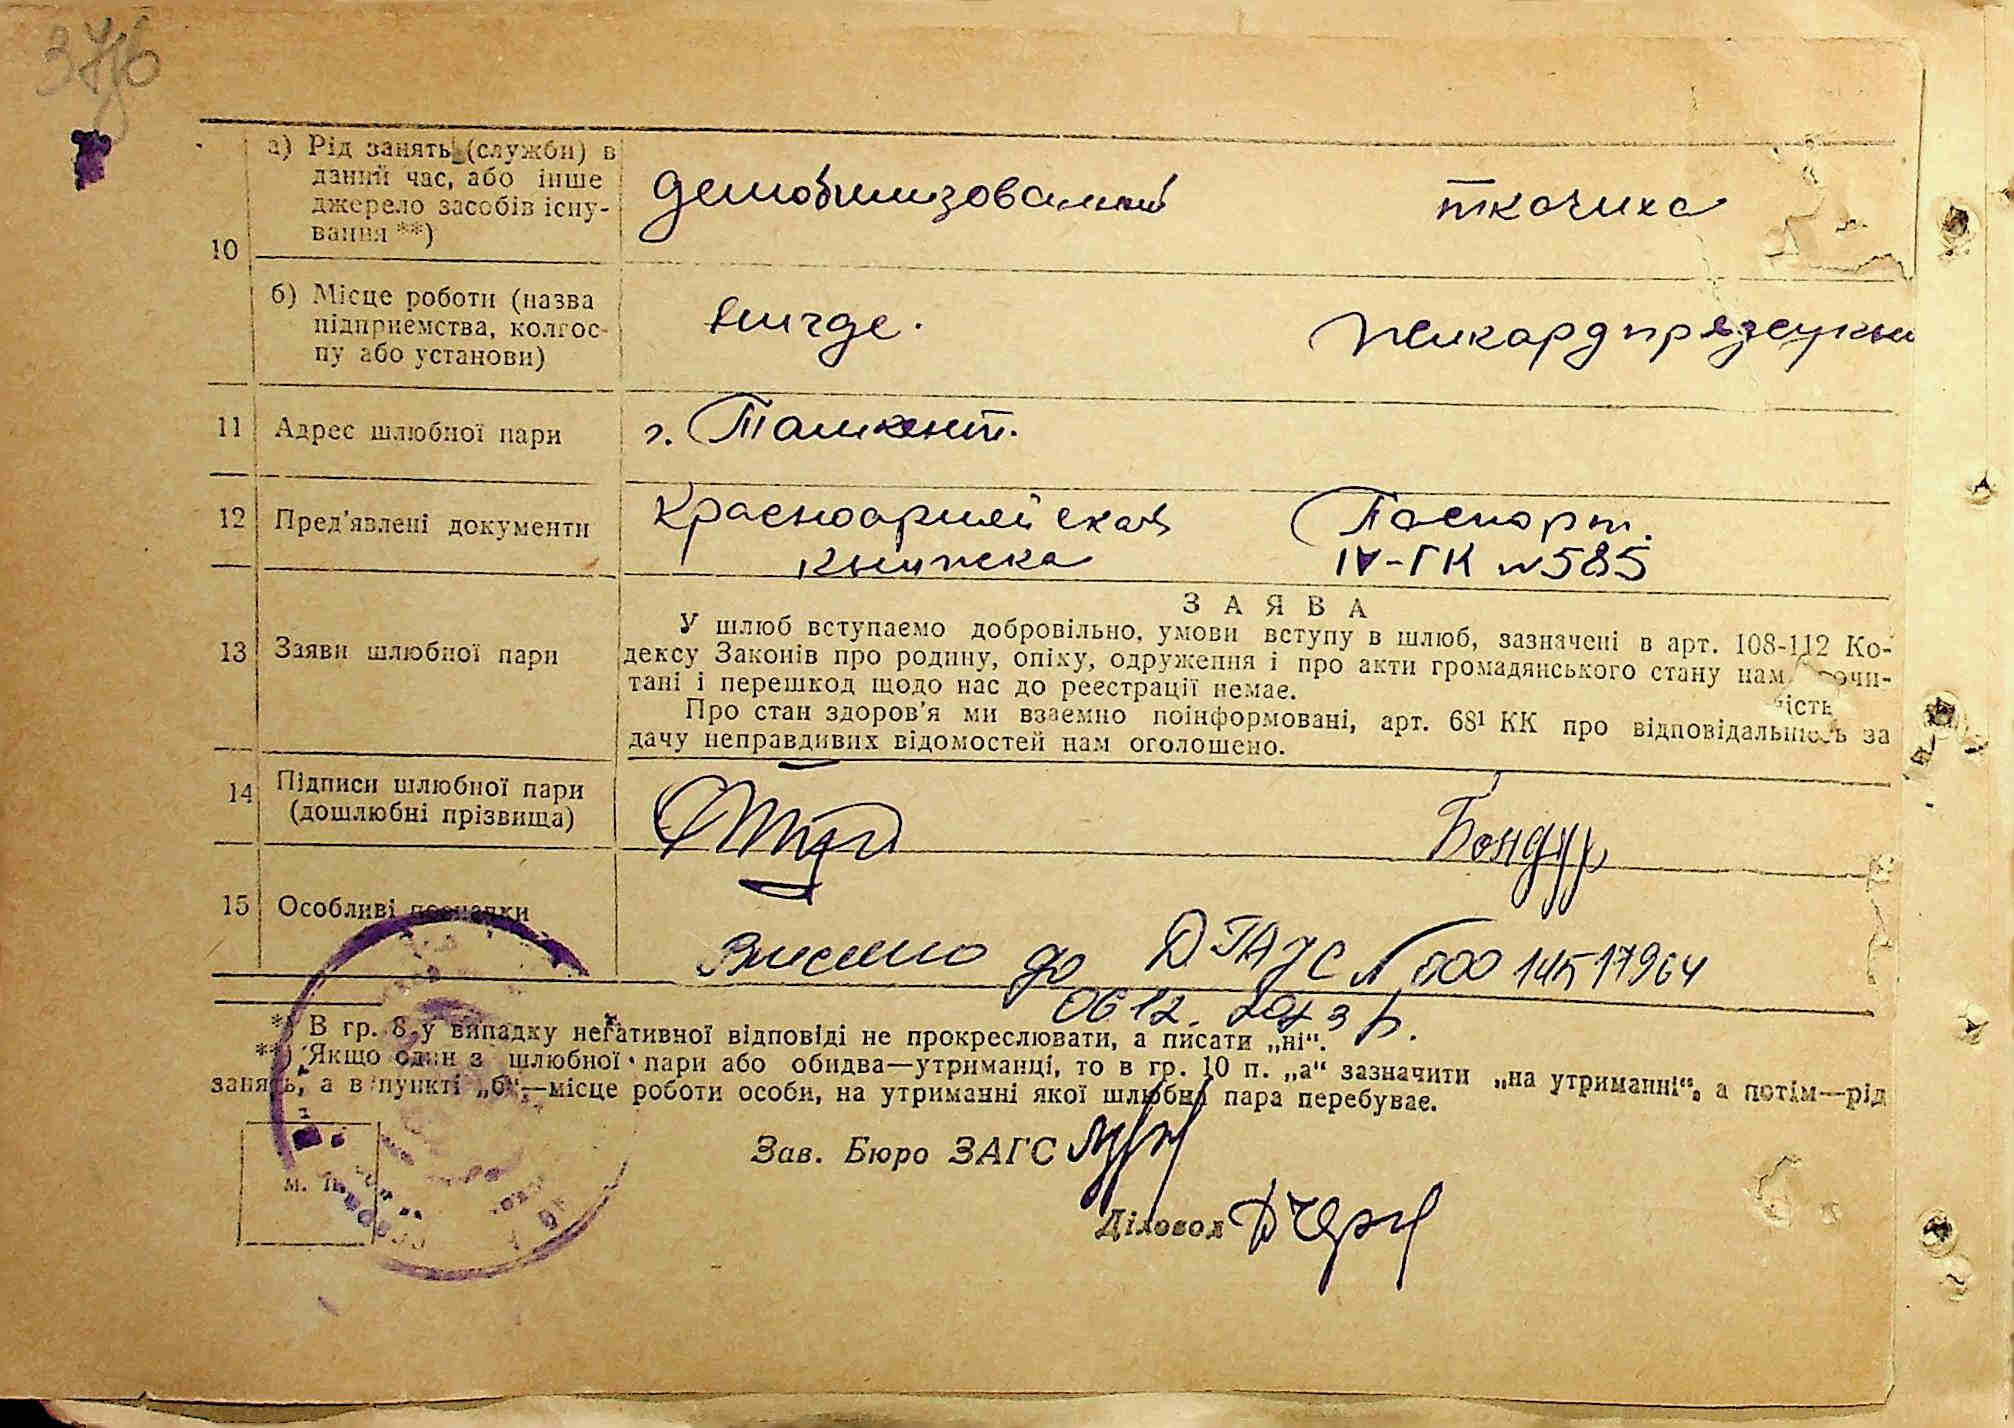 376
а) Рід занять (служби) в
даний час, або інше
джерело засобів існу-
вання **)
демобилизованный
ткачиха
10
б) Місце роботи (назва
підприємства, колгос-
пу або установи)
нигде.
11
Адрес шлюбної пари
г. Ташкент.
12
Пред'явлені документи
Красноармейская
книжка
Паспорт.
IV-ГК №585
13
Заяви шлюбної пари
ЗАЯВА
У шлюб вступаємо добровільно, умови вступу в шлюб, зазначені в арт. 108-112 Ко-
дексу Законів про родину, опіку, одруження і про акти громадянського стану нам
тані і перешкод щодо нас до реєстрації немає.
Про стан здоров'я ми взаємно поінформовані, арт. 68¹ КК про відповідальність за
дачу неправдивих відомостей нам оголошено.
14
Підписи шлюбної пари
(дошлюбні прізвища)
Бондур
15
Особливі познаки
Внесено до ДРАЦС №
06 12. 2023 р.
*) В гр. 8 у випадку негативної відповіді не прокреслювати, а писати „ні“.
**) Якщо один з шлюбної пари або обидва—утриманці, то в гр. 10 п. „а“ зазначити „на утриманні“, а потім—рід
занять, а в пункті „б“—місце роботи особи, на утриманні якої шлюбна пара перебуває.
Зав. Бюро ЗАГС
м. п.
Діловод